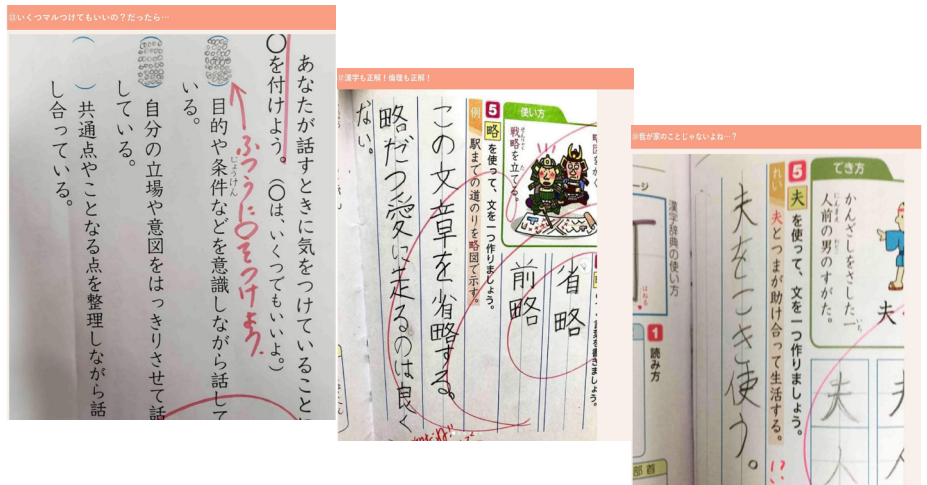 ⑬いくつマルつけてもいいの？だったら…
あなたが話すときに気をつけていること
○を付けよう。（○は、いくつでもいいよ。）
ふつうに○をつけよう。
（ ）目的や条件などを意識しながら話して
じょうけん
いる。
（ ）自分の立場や意図をはっきりさせて話
している。
（ ）共通点やことなる点を整理しながら話
し合っている。
漢字も正解！倫理も正解！
使い方
戦略を立てる。
せんりゃく
た
省略
前略
5 略を使って、文を一つ作りましょう。
例 駅までの道のりを略図で示す。
この文章を省略する。
略だつ愛に走るのは良く
ない。
我が家のことじゃないよね…？
でき方
かんざしをさした一
人前の男のすがた。
にんまえ
いち
夫
夫
夫
5 夫を使って、文を一つ作りましょう。
れい 夫とつまが助け合って生活する。
夫をこき使う。
漢字辞典の使い方
はねる
1 読み方
部首